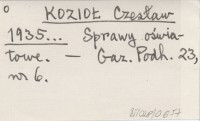 KOZIOŁ Czesław
1935... Sprawy oświa-
towe. — Gaz. Podh. 23,
nr 6.